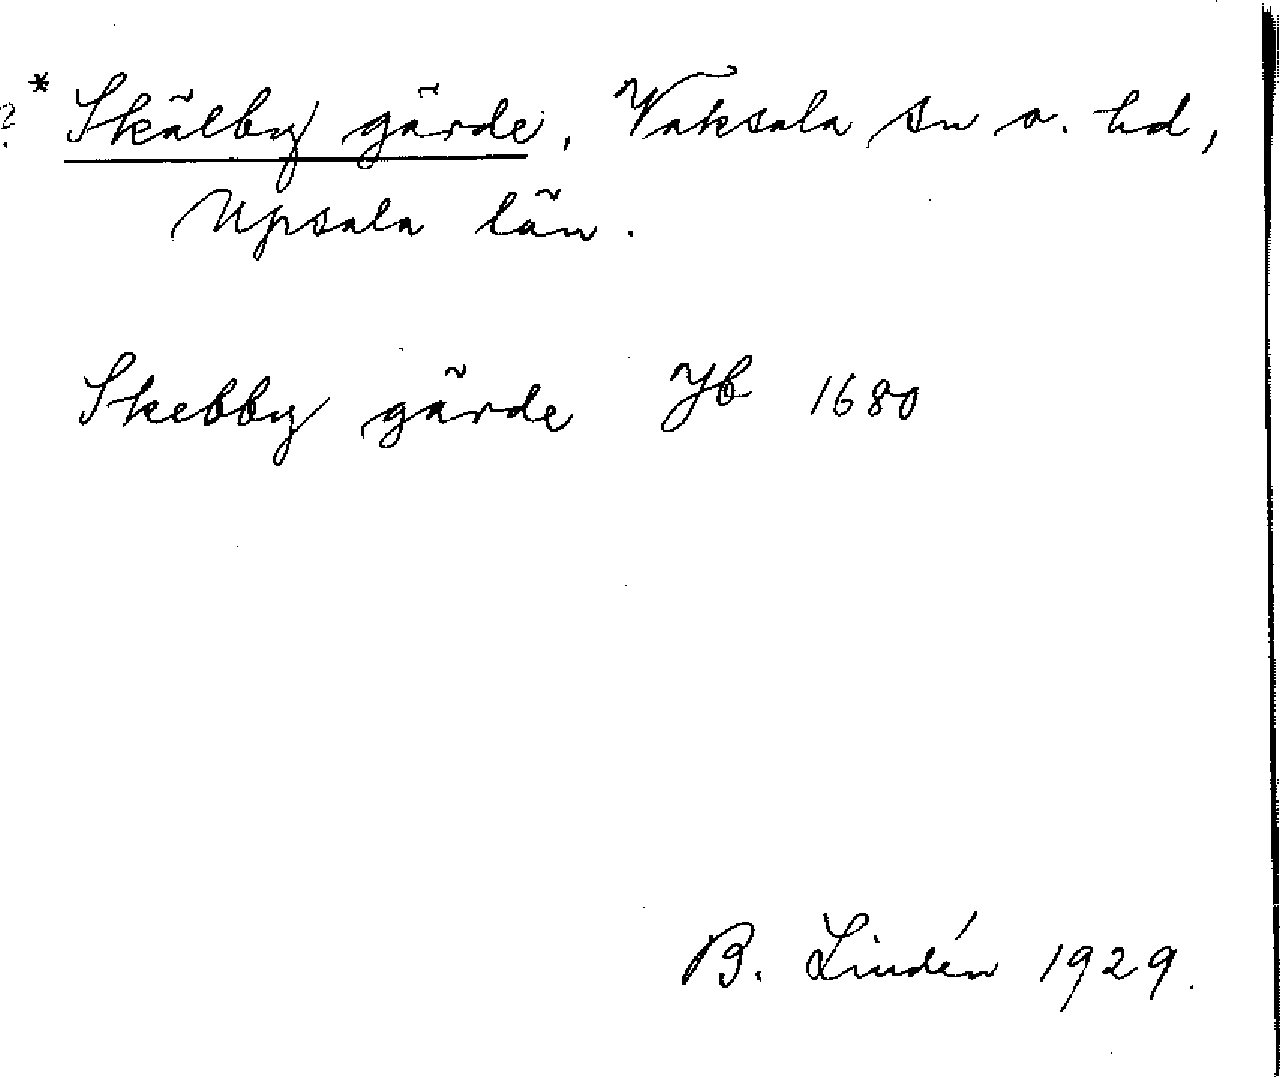 ?* Skälby gärde, Vaksala sn o. hd,
Upsala län.
Skebby gärde Jb 1680
B. Lindén 1929.